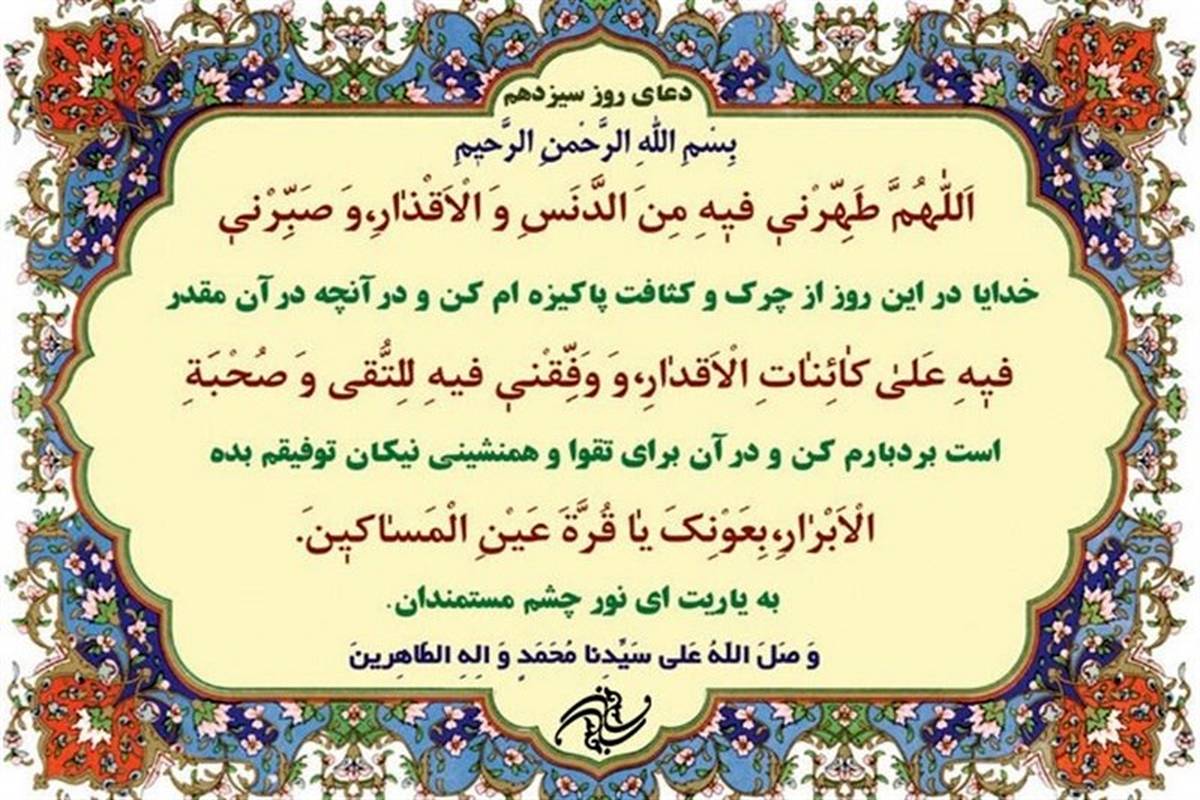 دعای روز سیزدهم
بِسْمِ اللهِ الرَّحْمنِ الرَّحیمِ
اَللّٰهُمَّ طَهِّرْنی فیهِ مِنَ الدَّنَسِ وَ الْاَقْذٰارِ،وَ صَبِّرْنی
خدایا در این روز از چرک و کثافت پاکیزه ام کن و در آنچه در آن مقدر
فیهِ عَلیٰ کٰائِنٰاتِ الْاَقدٰارِ،وَ وَفِّقْنی فیهِ لِلتُّقی وَ صُحْبَةِ
است بردبارم کن و در آن برای تقوا و همنشینی نیکان توفیقم بده
الْاَبْرٰارِ،بِعَوْنِکَ یٰا قُرَّةَ عَیْنِ الْمَسٰاکینَ.
به یاریت ای نور چشم مستمندان.
وَ صَلَ اللهُ عَلی سَیِّدِنا مُحَمَدٍ وَ الِهِ الطّاهِرینَ